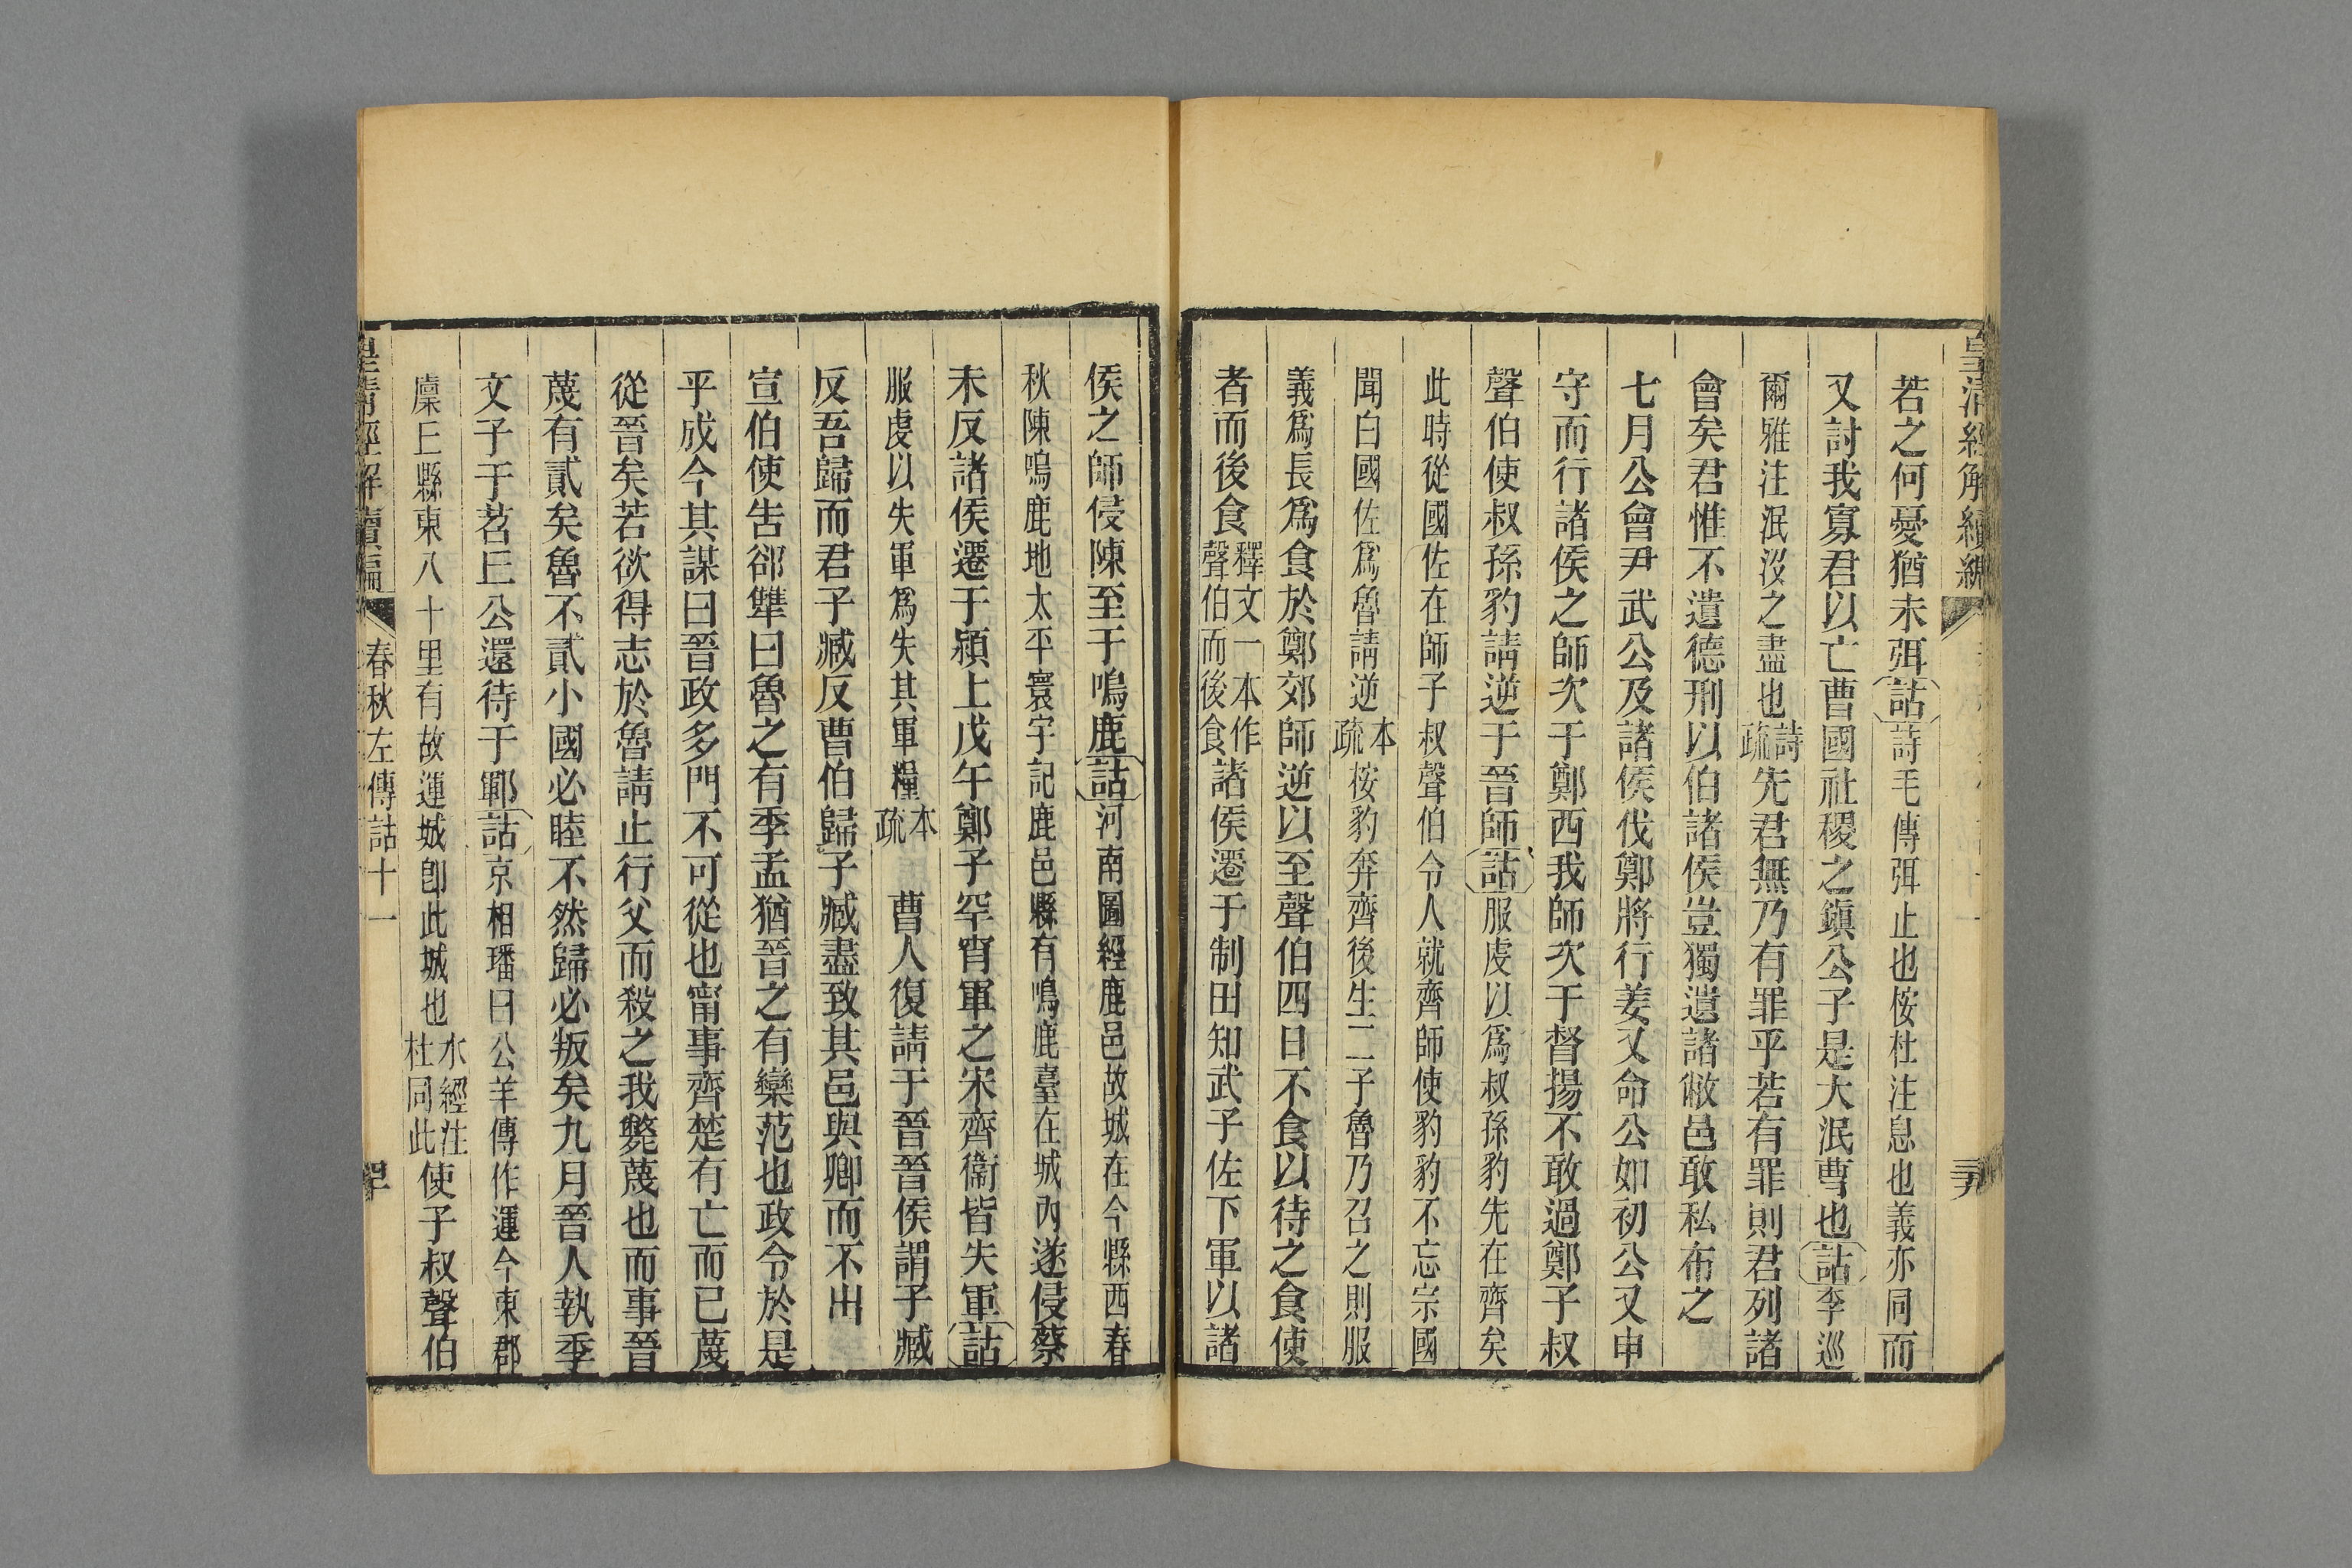 皇清經解續編
若之何憂猶未弭詁詩毛傳弭止也桉杜注息也義亦同而
又討我寡君以亡曹國社稷之鎮公子是大泯曹也詁李巡
爾雅注泯沒之盡也詩疏先君無乃有罪乎若有罪則君列諸
會矣君惟不遺德刑以伯諸侯豈獨遺諸敝邑敢私布之
七月公會尹武公及諸侯伐鄭將行姜又命公如初公又申
守而行諸侯之師次于鄭西我師次于督揚不敢過鄭子叔
聲伯使叔孫豹請逆于晉師詁服虔以爲叔孫豹先在齊矣
此時從國佐在師子叔聲伯令人就齊師使豹豹不忘宗國
聞白國佐爲魯請逆本疏桉豹奔齊後生二子魯乃召之則服
義爲長爲食於鄭郊師逆以至聲伯四日不食以待之食使
者而後食釋文一本作聲伯而後食諸侯遷于制田知武子佐下軍以諸
侯之師侵陳至于鳴鹿詁河南圖經鹿邑故城在今縣西春
秋陳鳴鹿地太平寰宇記鹿邑縣有鳴鹿臺在城內遂侵蔡
未反諸侯遷于潁上戊午鄭子罕宵軍之宋齊衞皆失軍詁
服虔以失軍爲失其軍糧本疏 曹人復請于晉晉侯謂子臧
反吾歸而君子臧反曹伯歸子臧盡致其邑與卿而不出
宣伯使告郤犫曰魯之有季孟猶晉之有欒范也政令於是
乎成今其謀曰晉政多門不可從也甯事齊楚有亡而已蔑
從晉矣若欲得志於魯請止行父而殺之我斃蔑也而事晉
蔑有貳矣魯不貳小國必睦不然歸必叛矣九月晉人執季
文子于苕丘公還待于鄆詁京相璠曰公羊傳作運今東郡
廩丘縣東八十里有故運城卽此城也水經注杜同此使子叔聲伯
皇清經解續編 春秋左傳詁十一